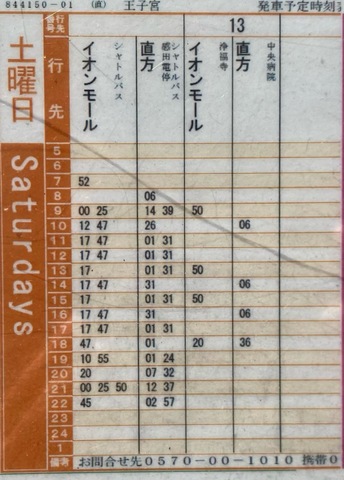 844150-01 (直) 王子宮 発車予定時刻
行先番号 13
土曜日 Saturdays
行先 イオンモール シャトルバス 直方 シャトルバス 感田電停 イオンモール 浄福寺 直方 中央病院
5
6
7 52
8 06
9 00 25 14 39 50
10 12 47 26 06
11 17 47 01 31
12 17 47 01 31
13 17 01 31 50
14 17 47 31 06
15 17 01 31 50
16 17 47 31 06
17 17 47 01 31
18 47 01 20 36
19 10 55 01 24
20 20 07 32
21 00 25 50 12 37
22 45 02 57
23
24
1
備考 お問合せ先0570-00-1010 携帯0